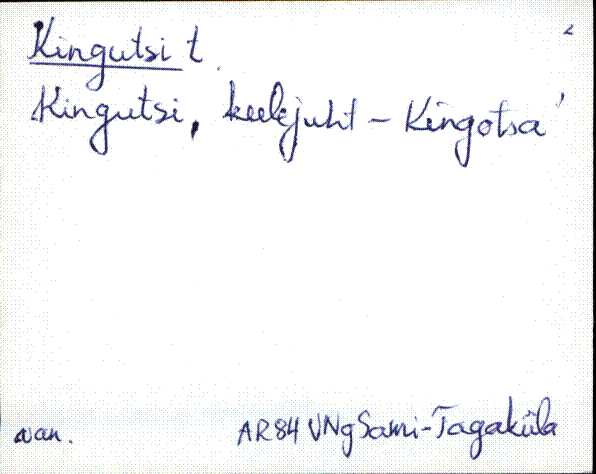 Kingutsi t.
Kingutsi, keelejuht – Kingotsa'
van.
AR84 VNg Sami-Tagaküla